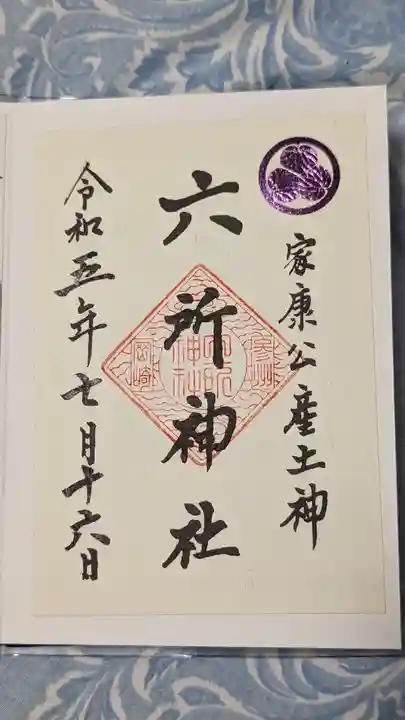 家康公産土神
六所神社
令和五年七月十六日
六所
神社
岡崎